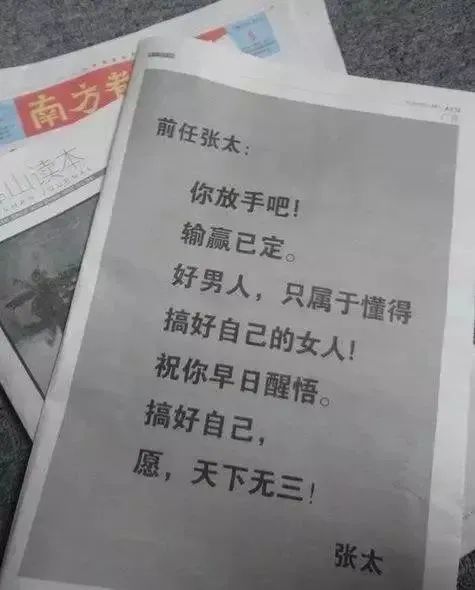 南方都
山读本
广告
前任张太：
你放手吧！
输赢已定。
好男人，只属于懂得
搞好自己的女人！
祝你早日醒悟。
搞好自己，
愿，天下无三！
张太